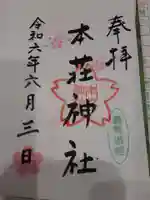 奉拝
本荘神社
令和六年六月三日